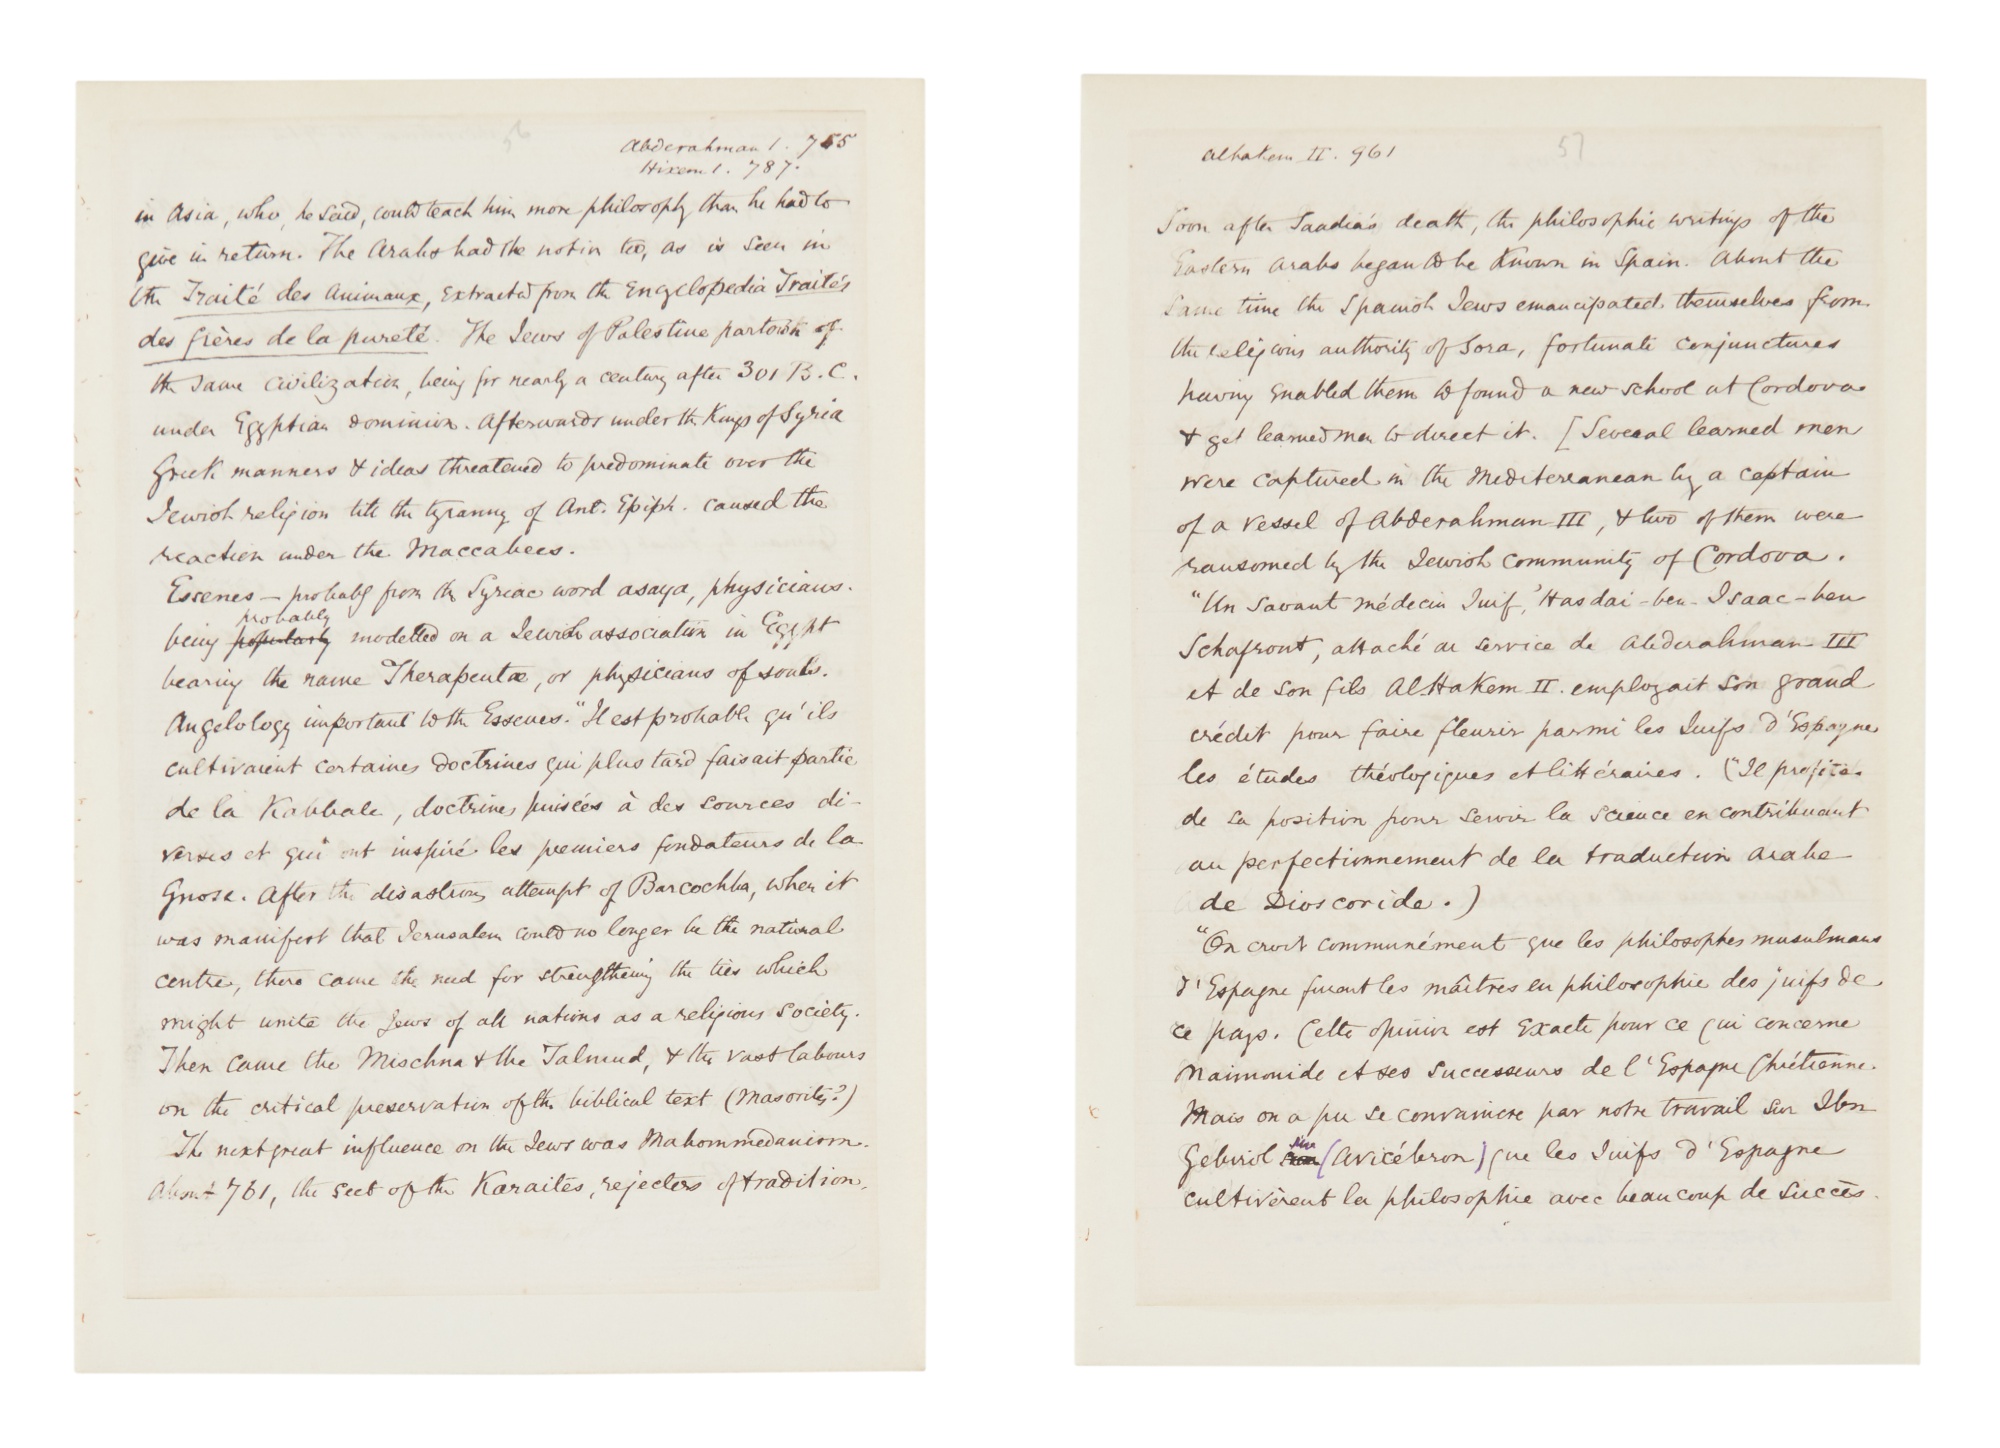 56
Abderahman I. 755
Hixem I. 787.
in Asia, who, he said, could teach him more philosophy than he had to
give in return. The Arabs had the notion too, as is seen in
the Traité des Animaux, extracted from the Encyclopedia Traités
des frères de la pureté. The Jews of Palestine partook of
the same civilization, being for nearly a century after 301 B.C.
under Egyptian dominion. Afterwards under the Kings of Syria
Greek manners & ideas threatened to predominate over the
Jewish religion till the tyranny of Ant. Epiph. caused the
reaction under the Maccabees.
Essenes — probably from the Syriac word asaya, physicians.
probably
being popularly modelled on a Jewish association in Egypt
bearing the name Therapeutæ, or physicians of souls.
Angelology important to the Essenes. "Il est probable qu'ils
cultivaient certaines doctrines qui plus tard faisait partie
de la Kabbale, doctrines puisées à des sources di-
verses et qui ont inspiré les premiers fondateurs de la
Gnose. After the disastrous attempt of Barcochba, when it
was manifest that Jerusalem could no longer be the natural
centre, there came the need for strengthening the ties which
might unite the Jews of all nations as a religious society.
Then came the Mischna & the Talmud, & the vast labours
on the critical preservation of the biblical text (Masorites?)
The next great influence on the Jews was Mahommedanism.
About 761, the sect of the Karaites, rejecters of tradition.
57
Alhakem II. 961
Soon after Saadia's death, the philosophic writings of the
Eastern Arabs began to be known in Spain. About the
same time the Spanish Jews emancipated themselves from
the religious authority of Sora, fortunate conjunctures
having enabled them to found a new school at Cordova
& get learned men to direct it. [Several learned men
were captured in the Mediterranean by a captain
of a vessel of Abderahman III, & two of them were
ransomed by the Jewish community of Cordova.
"Un savant médecin Juif, Hasdaï-ben-Isaac-ben
Schafrout, attaché au service de Abderahman III
et de son fils AlHakem II. employait son grand
crédit pour faire fleurir parmi les Juifs d'Espagne
les études théologiques et littéraires. ("Il profita
de sa position pour servir la science en contribuant
au perfectionnement de la traduction arabe
de Dioscoride.)
"On croit communément que les philosophes musulmans
d'Espagne furent les maîtres en philosophie des juifs de
ce pays. Cette opinion est exacte pour ce qui concerne
Maimonide et ses successeurs de l'Espagne Chrétienne.
Mais on a pu se convaincre par notre travail sur Ibn
Gebirol (Avicébron) que les Juifs d'Espagne
cultivèrent la philosophie avec beaucoup de succès.